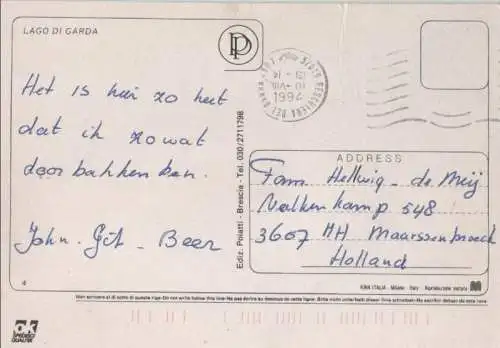 LAGO DI GARDA
Het is hier zo heet
dat ik zowat
door bakken ben.
John - Git - Beer
Ediz. Poiatti - Brescia - Tel. 030/2711798
37019 PESCHIERA DEL GARDA
13 - 14
10 -VIII
1994
ADDRESS
Fam Hellwig - de Meij
Valkenkamp 548
3607 HH Maarssenbroek
Holland
KINA ITALIA - Milano - Italy - Riproduzione vietata
4
Non scrivere al di sotto di questa riga - Do not write below this line - Ne pas écrire au dessous de cette ligne
ok
SPECIALE
QUALITÉ